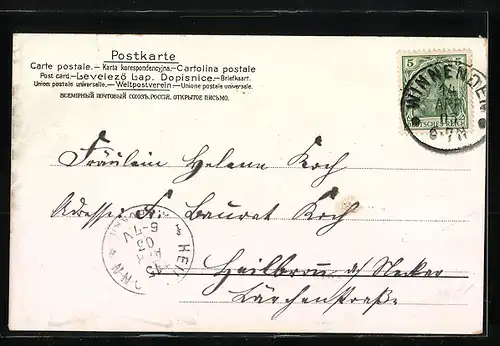 Postkarte
Carte postale. — Karta korespondencyjna. — Cartolina postale
Post card. — Levelező Lap. Dopisnice. — Briefkaart.
Union postale universelle. — Weltpostverein — Unione postale universale.
ВСЕМІРНЫЙ ПОЧТОВЫЙ СОЮЗЪ. РОССІЯ. ОТКРЫТОЕ ПИСЬМО.
5 5
DEUTSCHES REICH
WINNENDEN
6-7N
Fräulein Helene Koch
Adresse: Fr. Baurat Koch
Heilbronn a/ Neckar
Lärchenstraße
HEI
15
APR
03
6-7V